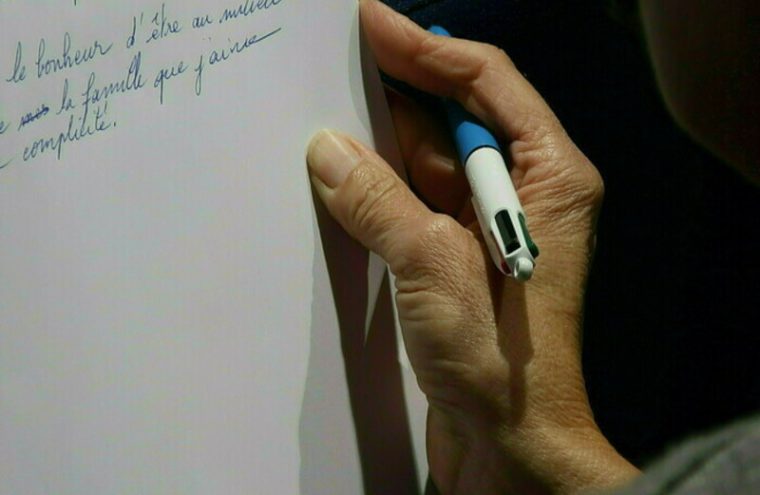 le bonheur d'être au milieu
la famille que j'aime
complicité.